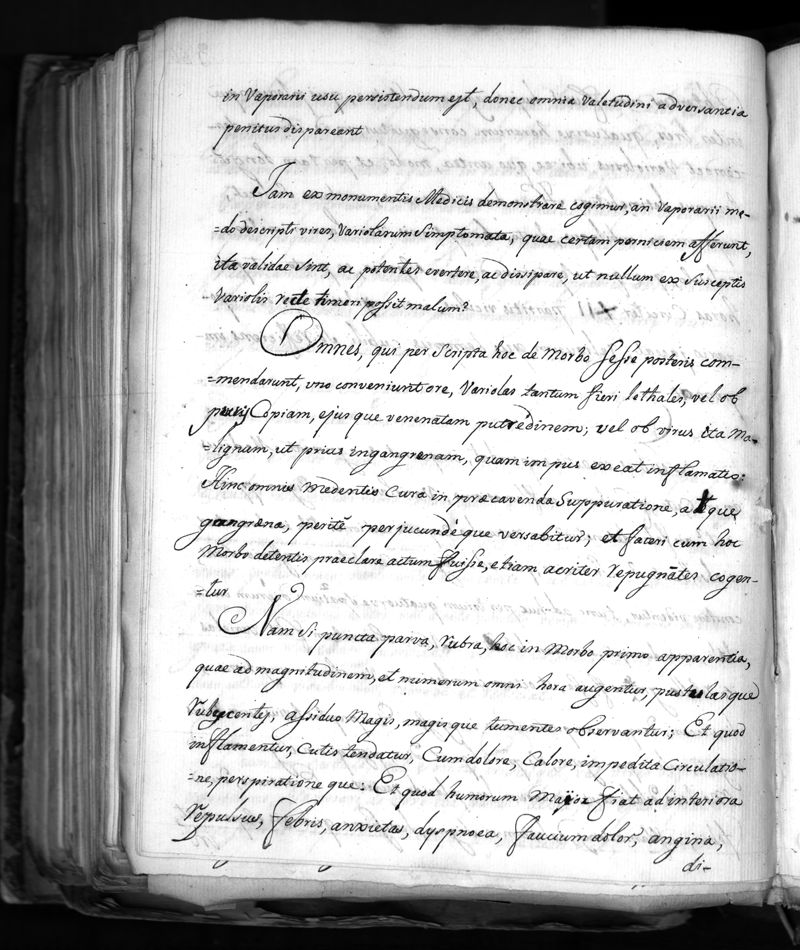 in Vaporarii usu persistendum est, donec omnia Valetudini adversantia
penitus dispareant
Iam ex monumentis Medicis demonstrare cogimur, an Vaporarii mo-
=do descripti vires, Variolarum Simptomata, quae certam perniciem afferunt,
ita validae sint, ac potentes evertere, ac dissipare, ut nullum ex Susceptis
Variolis recte timeri possit malum?
Omnes, qui per Scripta hoc de Morbo sesse posteris com-
=mendarunt, uno conveniunt ore, Variolas tantum fieri lethales, vel ob
puris Copiam, ejusque venenatam putredinem; vel ob virus ita Ma-
=lignam, ut prius in gangrenam, quam in pus exeat inflamatio:
Hinc omnis Medentis Cura in praecavenda Suppuratione, atque
gangraena, peritè perjucundèque versabitur; et fateri cum hoc
Morbo detentis praeclare actum fuisse, etiam acriter repugnātes cogen-
=tur
Nam Si puncta parva, rubra, hoc in Morbo primo apparentia,
quae ad magnitudinem, et numerum omni hora augentur, pustulasque
rubescentes, assiduo Magis, magisque tumentes observantur; Et quod
inflamentur, Cutis tendatur, Cum dolore, Calore, impedita Circulatio-
=ne, perspirationeque: Et quod humorum Major fiat ad interiora
repulsus, febris, anxietas, dyspnoea, faucium dolor, angina,
di-